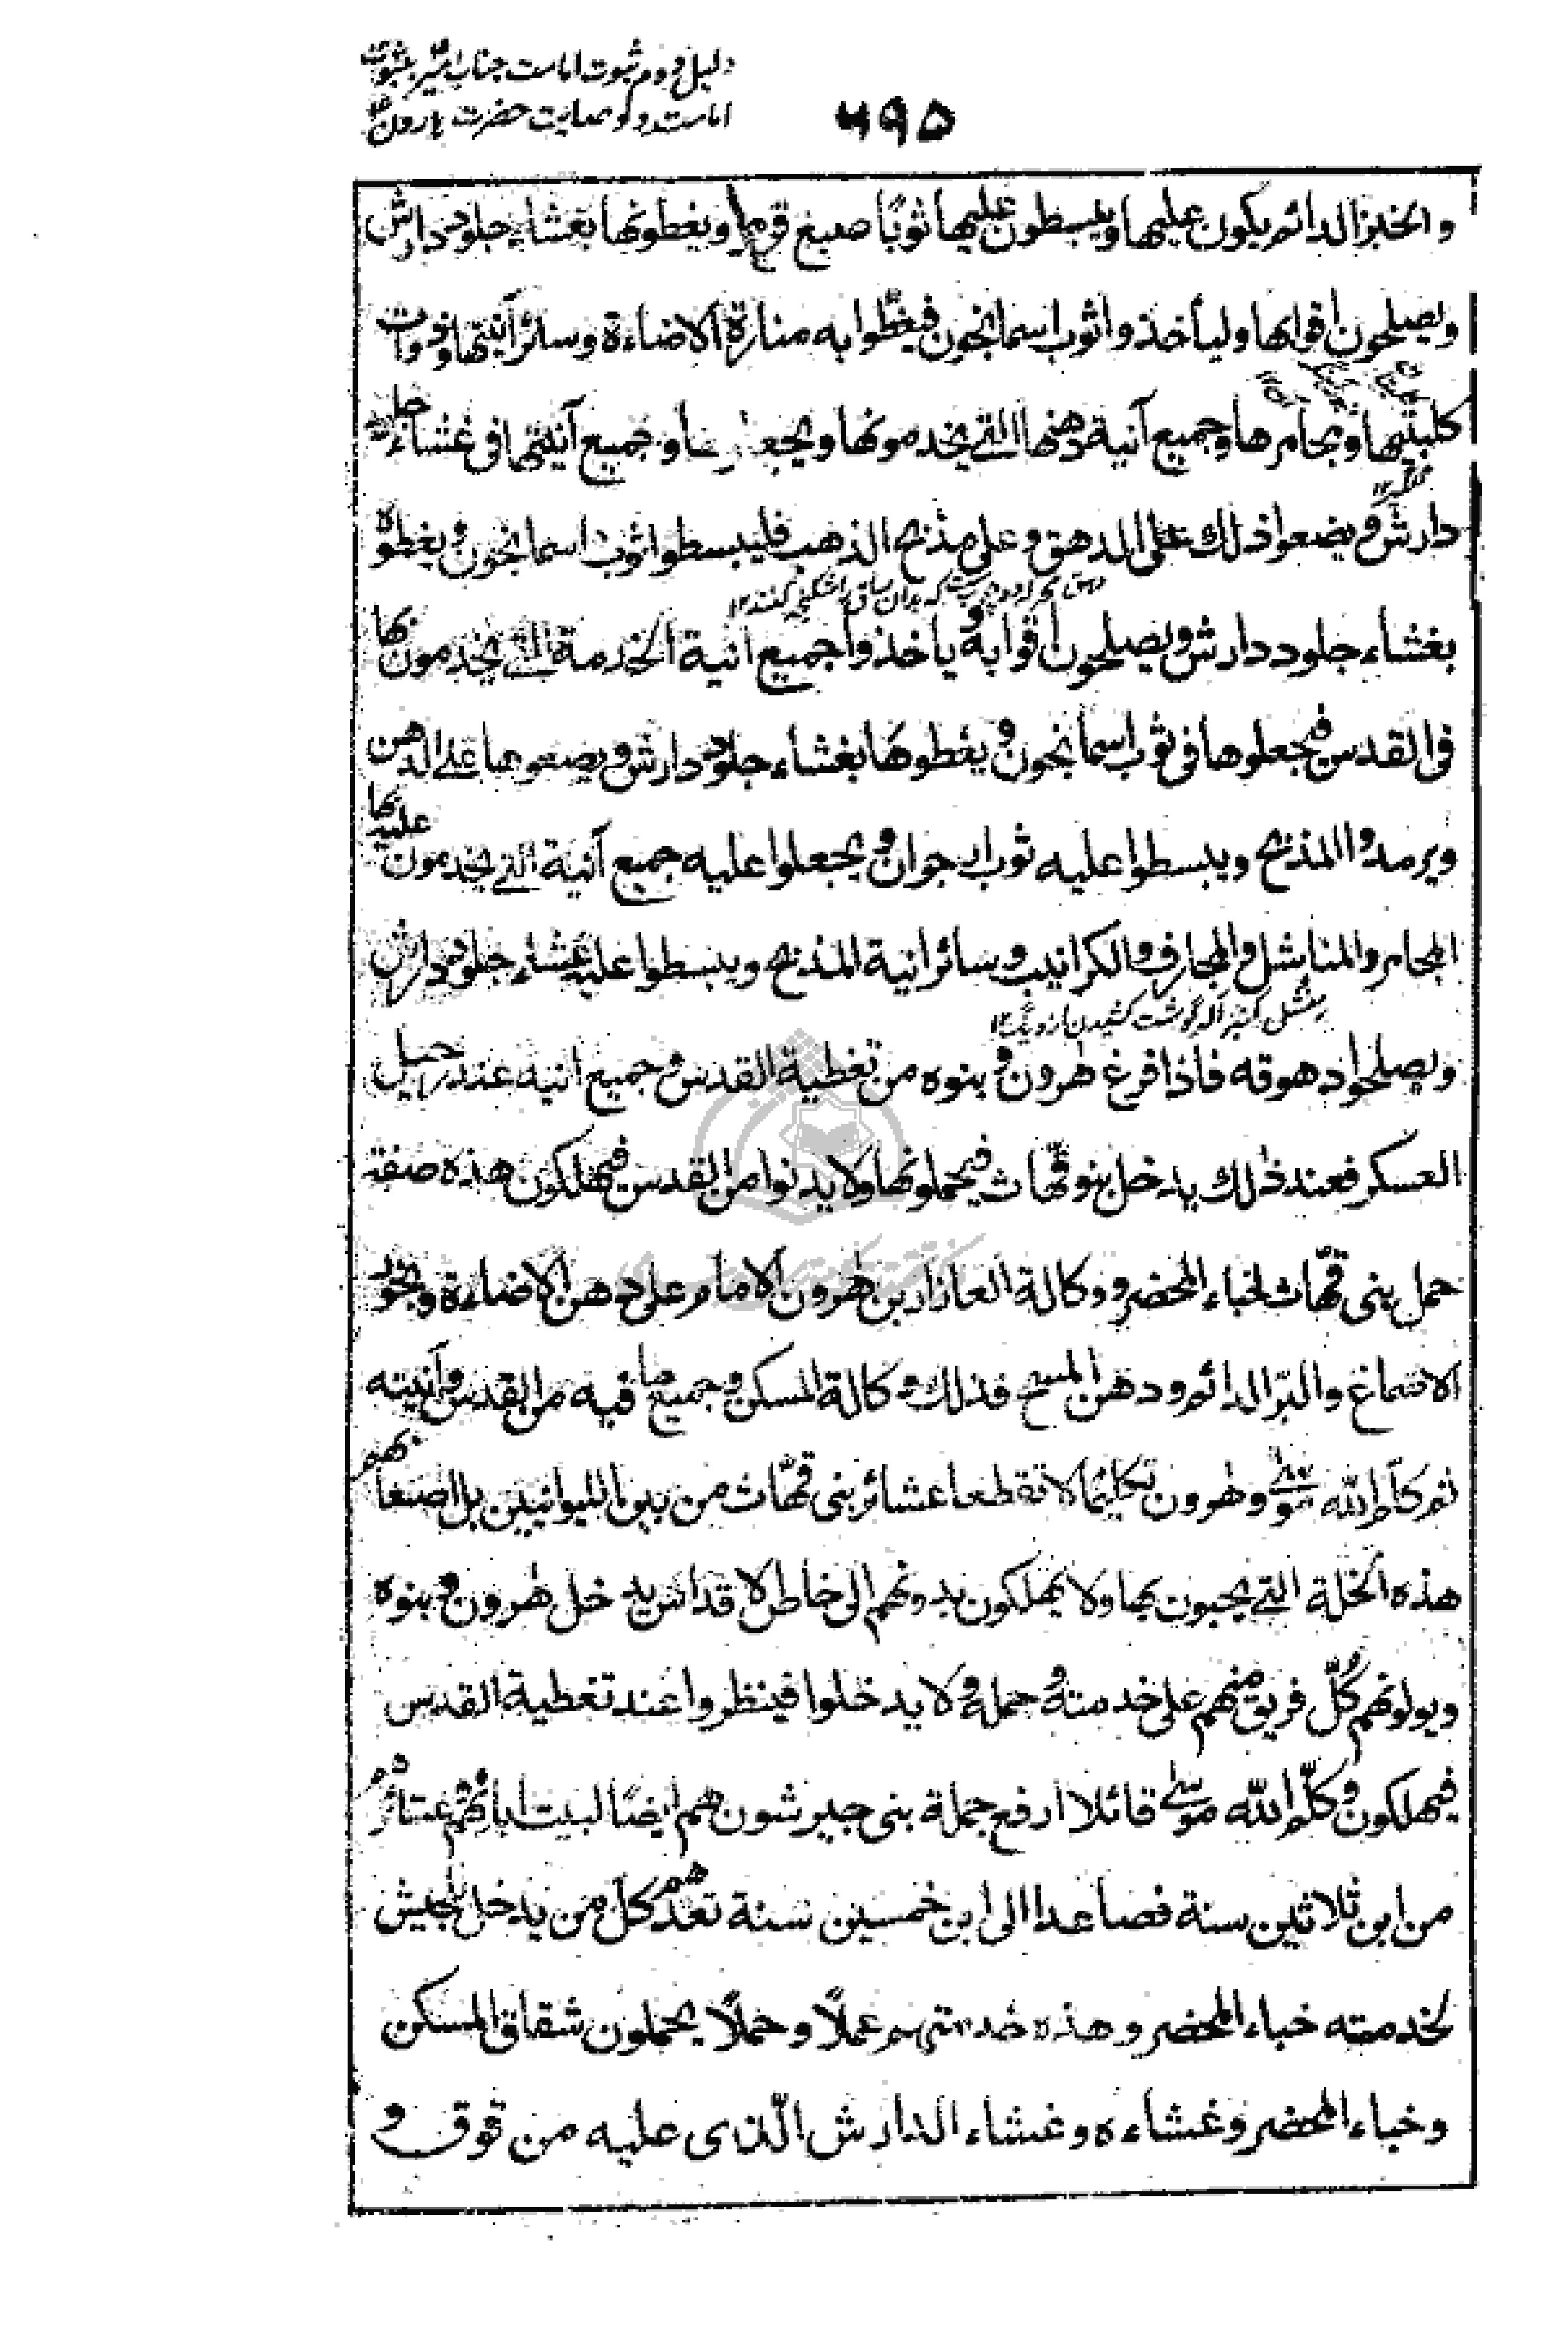 دلیل دوم ثبوت امامت جناب امیر بثبوت
امامت و وصایت حضرت هارون
۶۹۵
والخبز الدائم يكون عليها ويبسطون عليها ثوبًا صبغ قرمز ويغطونها بغشاء جلود دارش
ويصلحون افواهها وليأخذوا ثوب اسمانجون فيغطوا به منارة الاضاءة وسائر آنيتها وذوات
كلبتيها ومجامرها وجميع آنية دهنها التي يخدمونها ويجعلوها وجميع آنيتها في غشاء جلد
دارش ويضعوا ذلك على الدهق وعلى مذبح الذهب فليبسطوا ثوب اسمانجون ويغطوه
بغشاء جلود دارش ويصلحون افوابه وياخذوا جميع انية الخدمة التي يخدمون بها
في القدس فيجعلوها في ثوب اسمانجون ويغطوها بغشاء جلود دارش ويضعوها على الدهن
ويرمدوا المذبح ويبسطوا عليه ثوب ارجوان ويجعلوا عليه جميع آنية التي يخدمون عليه بها
المجامر والمناشل والمجارف والكرانيب وسائر انية المذبح ويبسطوا عليه غشاء جلود دارش
منشل كمنبر آله گوشت كشيدن از ديگ ۱۲
ويصلحوا دهوقه فاذا فرغ هرون وبنوه من تغطية القدس وجميع انيه عند رحيل
العسكر فعند ذلك يدخل بنو قهاث فيحملونها ولا يدنوا من القدس فيهلكون هذه صفة
حمل بني قهاث لخباء المحضر ووكالة العازار بن هرون الامام على دهن الاضاءة وبخور
الاصماغ والبر الدائم ودهن المسح فذلك وكالة المسكن وجميع ما فيه من القدس وآنيته
ثم كلم الله موسى وهرون تكليما لا تقطعا عشائر بني قهاث من بين الليوانيين بل اصنعا بهم
هذه الخلة التي يحيون بها ولا يهلكون بدونهم الى خاطر الاقداس يدخل هرون وبنوه
ويولونهم كل فريق منهم على خدمته وحمله ولا يدخلوا فينظروا عند تغطية القدس
فيهلكون وكلم الله موسى قائلا ارفع جملة بني جيرشون هم ايضًا لبيت ابائهم عشائرهم
من ابن ثلاثين سنة فصاعدا الى ابن خمسين سنة تعدهم كل من يدخل الجيش
لخدمته خباء المحضر وهذه خدمتهم عملًا وحملًا يحملون شقاق المسكن
وخباء المحضر وغشاءه وغشاء الدارش الذي عليه من فوق و